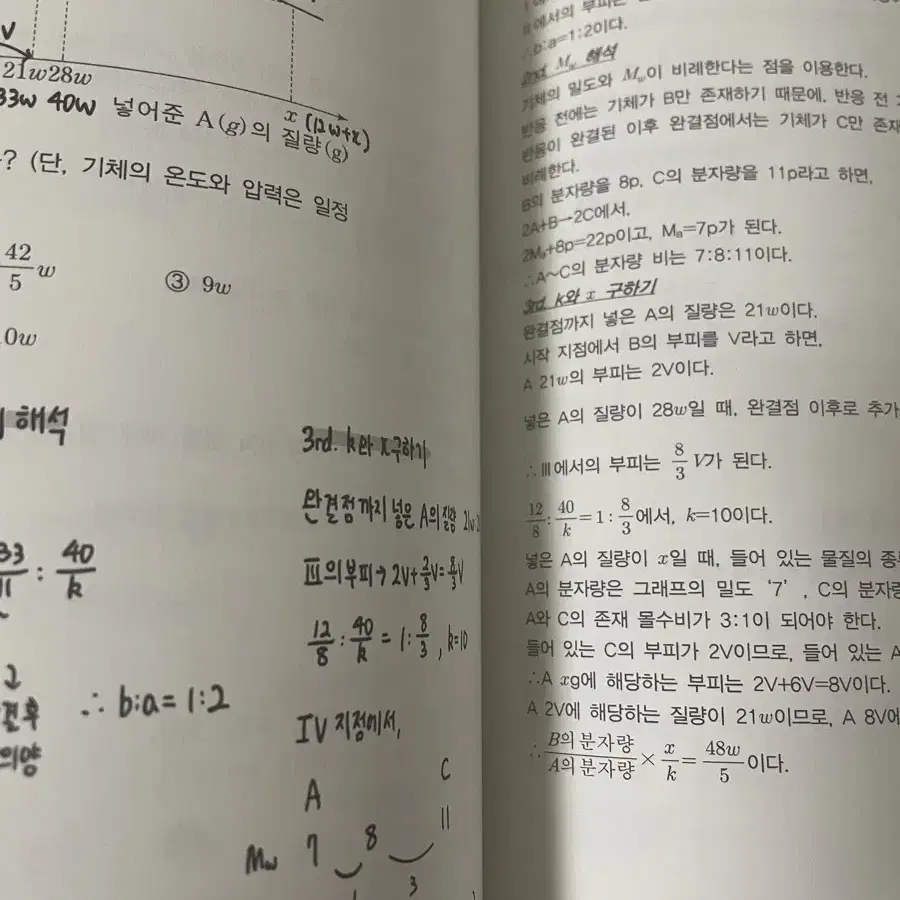 V
21w 28w
33w 40w 넣어준 A(g)의 질량(g)
x (12w+x)
? (단, 기체의 온도와 압력은 일정
42/5 w
③ 9w
0w
해석
33/11 : 40/k
2
∴ b:a = 1:2
의양
3rd. k와 x구하기
완결점까지 넣은 A의 질량 21w
Ⅲ의 부피→ 2V+2/3V=8/3V
12/8 : 40/k = 1 : 8/3 , k=10
IV 지점에서,
A C
Mw 7 8 11
3
Ⅱ에서의 부피는
∴b:a=1:2이다.
2nd. Mw 해석
기체의 밀도와 Mw이 비례한다는 점을 이용한다.
반응 전에는 기체가 B만 존재하기 때문에, 반응 전
반응이 완결된 이후 완결점에서는 기체가 C만 존재
비례한다.
B의 분자량을 8p, C의 분자량을 11p라고 하면,
2A+B→2C에서,
2Ma+8p=22p이고, Ma=7p가 된다.
∴A~C의 분자량 비는 7:8:11이다.
3rd. k와 x 구하기
완결점까지 넣은 A의 질량은 21w이다.
시작 지점에서 B의 부피를 V라고 하면,
A 21w의 부피는 2V이다.
넣은 A의 질량이 28w일 때, 완결점 이후로 추가
∴Ⅲ에서의 부피는 8/3 V가 된다.
12/8 : 40/k = 1 : 8/3 에서, k=10이다.
넣은 A의 질량이 x일 때, 들어 있는 물질의 종
A의 분자량은 그래프의 밀도 '7', C의 분자량
A와 C의 존재 몰수비가 3:1이 되어야 한다.
들어 있는 C의 부피가 2V이므로, 들어 있는 A
∴A xg에 해당하는 부피는 2V+6V=8V이다.
A 2V에 해당하는 질량이 21w이므로, A 8V에
∴ B의 분자량/A의 분자량 × x/k = 48w/5 이다.